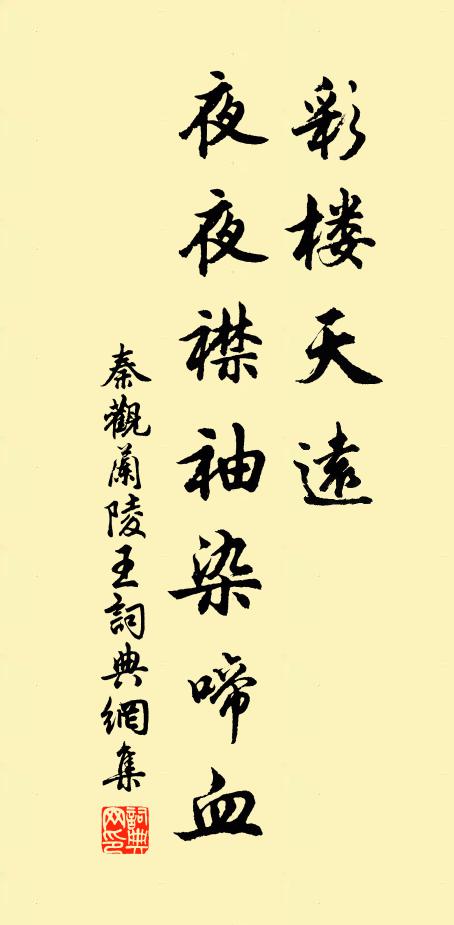 彩楼天遠
夜夜襟袖染啼血
秦觀蘭陵王詞典網集
詞典网印